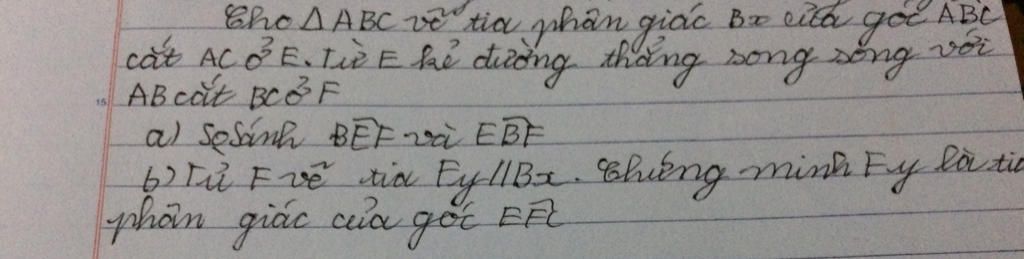 Cho Δ ABC vẽ tia phân giác Bx của góc ABC
cắt AC ở E. Từ E kẻ đường thẳng song song với
15 AB cắt BC ở F
a) So Sánh BEF và EBF
b) Từ F vẽ tia Fy // Bx. Chứng minh Fy là tia
phân giác của góc